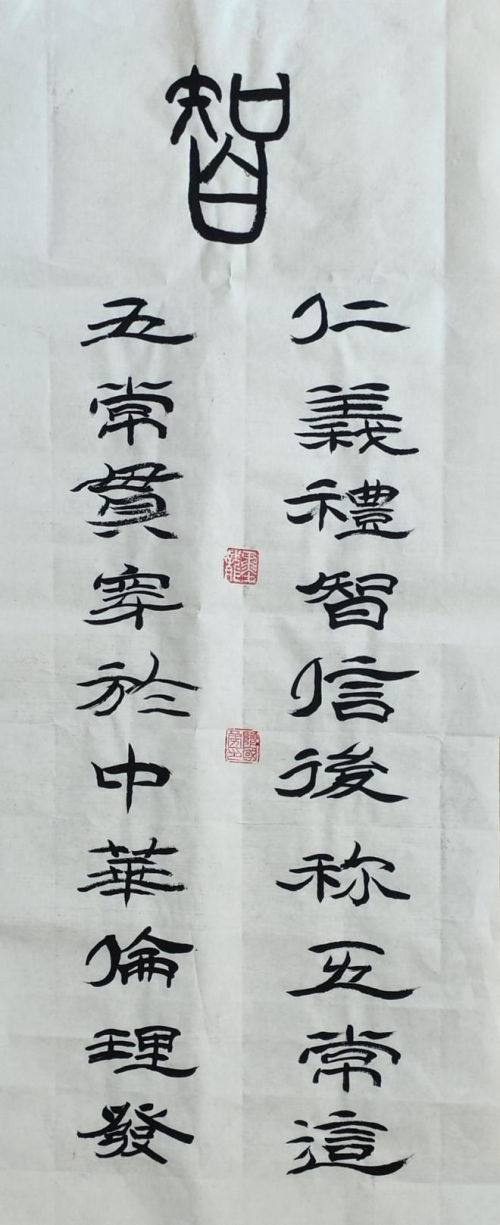 智
仁義禮智信後称五常這
五常貫穿於中華倫理發